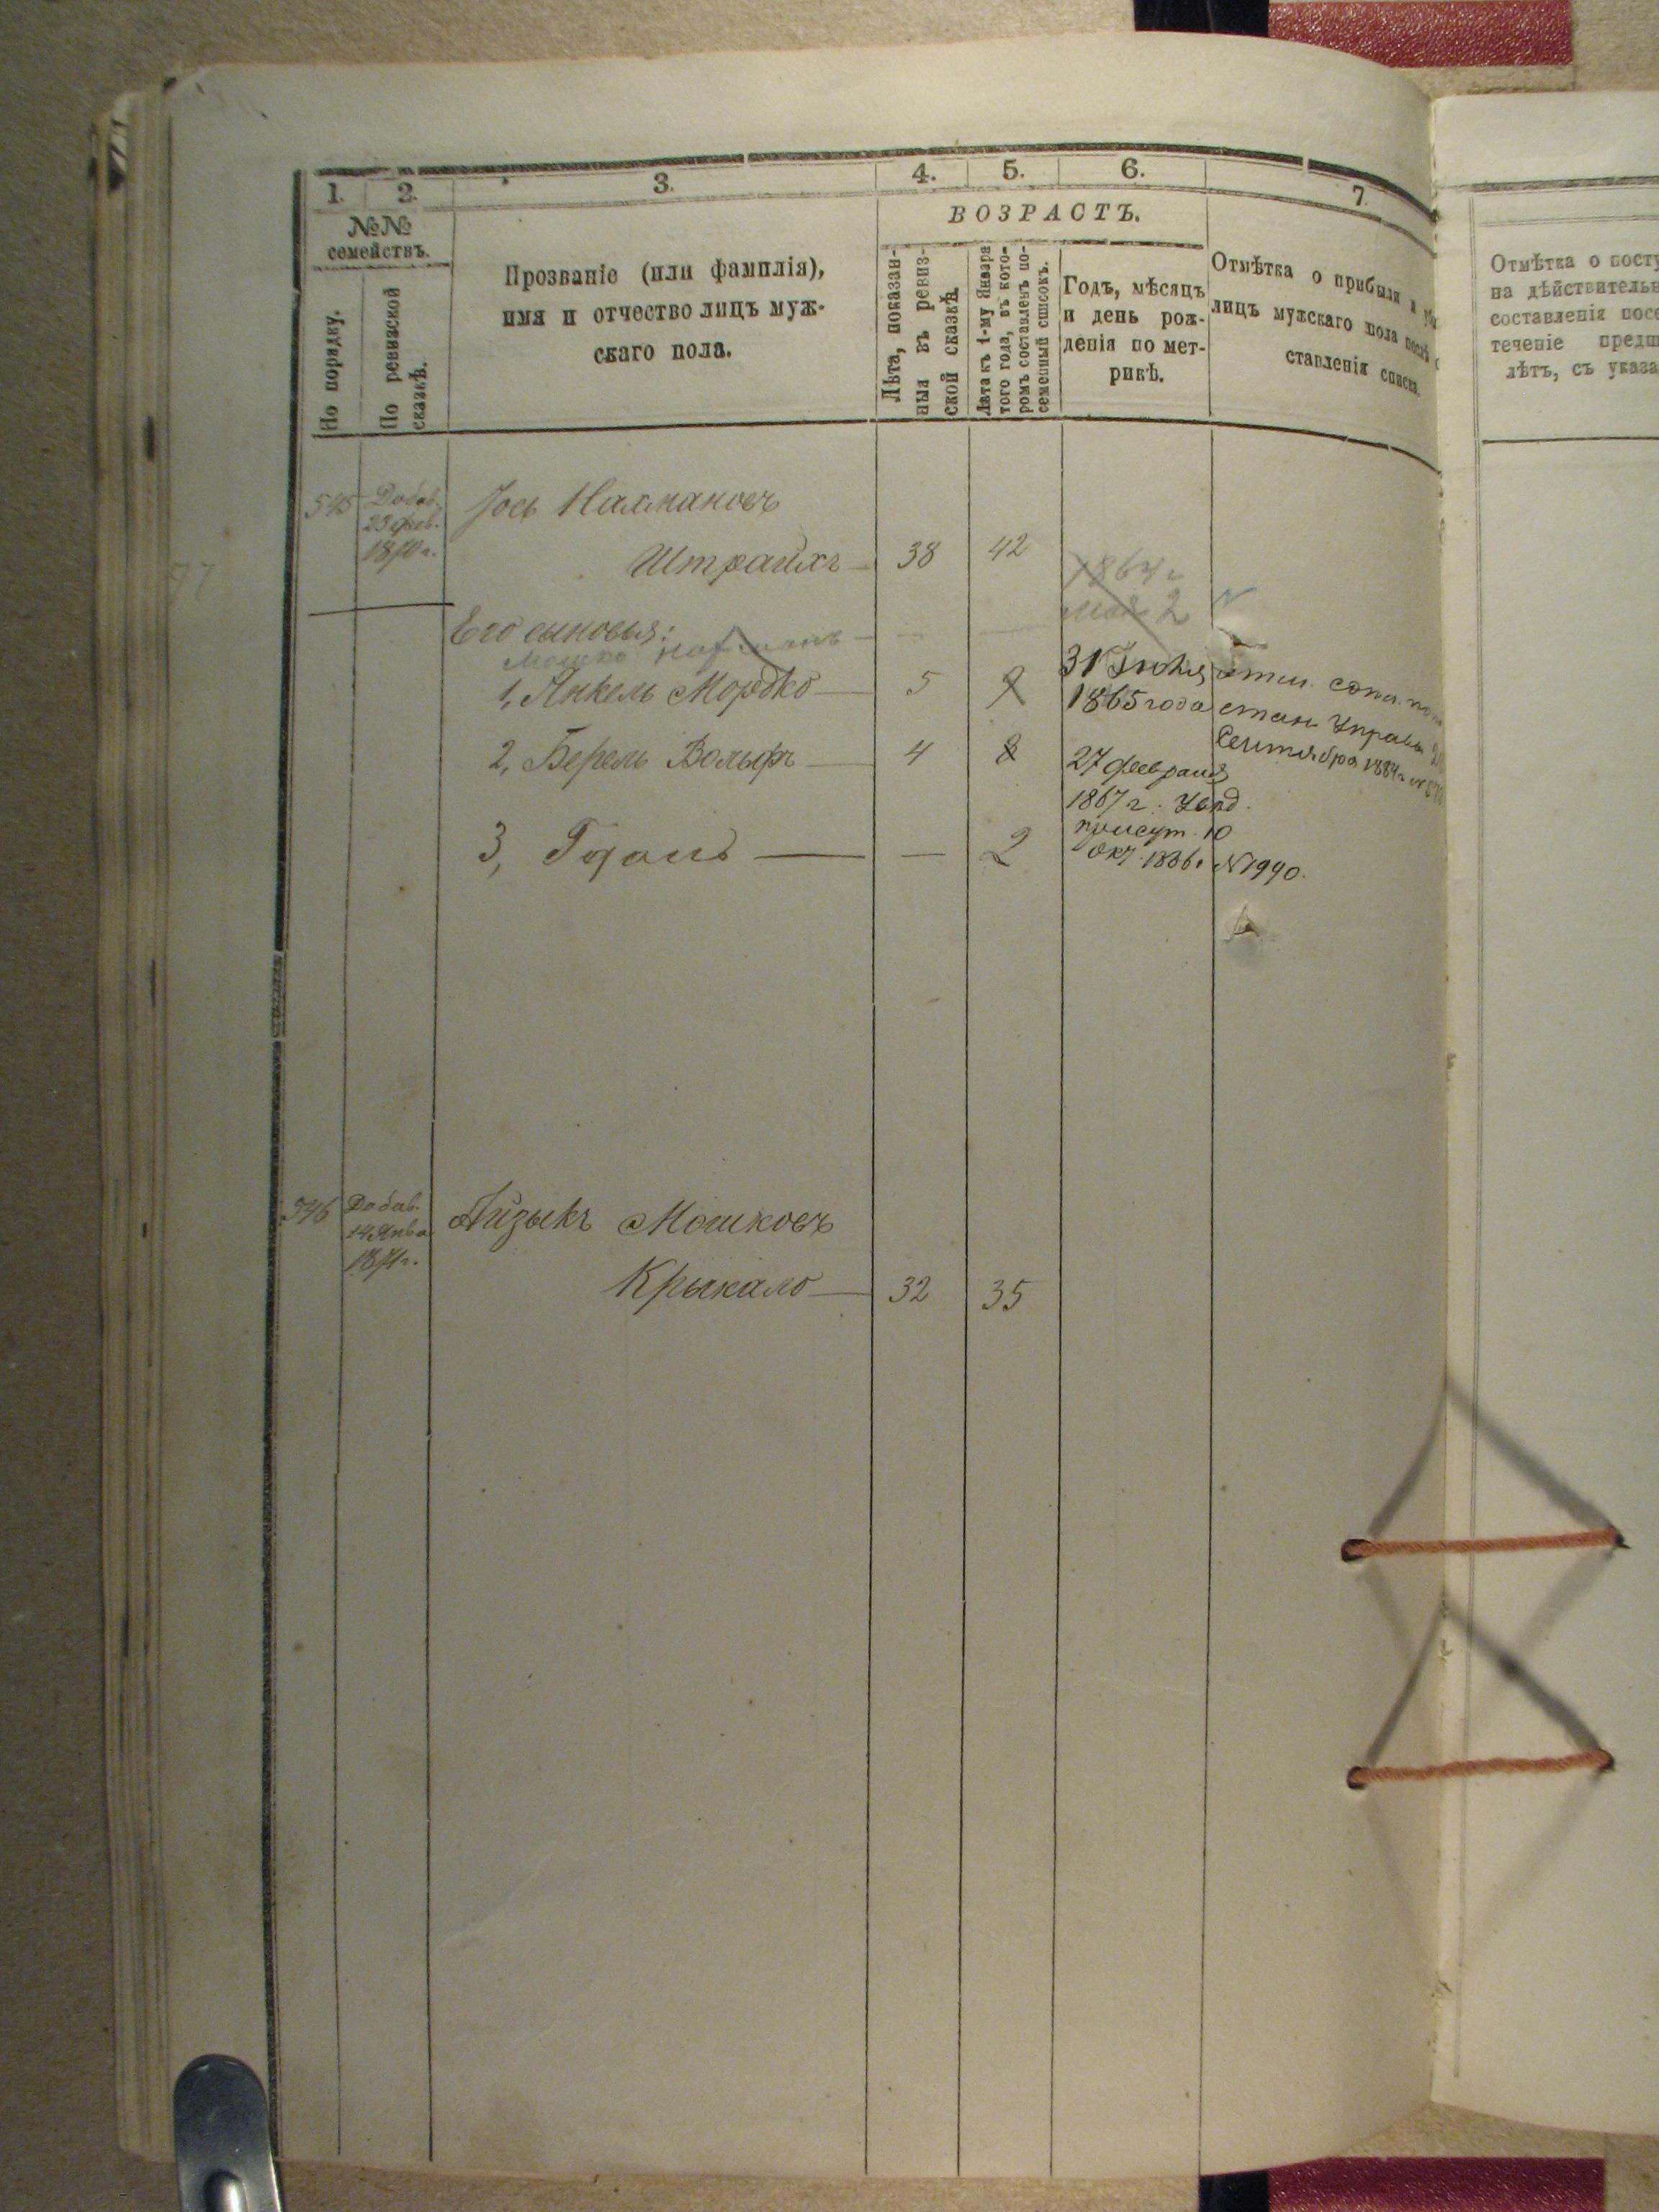 1. 2. 3. 4. 5. 6. 7.
№№
семействъ.
По порядку.
По ревизской
сказкѣ.
Прозваніе (или фамилія),
имя и отчество лицъ муж-
скаго пола.
ВОЗРАСТЪ.
Лѣта, показан-
ныя въ ревиз-
ской сказкѣ.
Лѣта къ 1-му Января
того года, въ кото-
ромъ составленъ по-
семейный списокъ.
Годъ, мѣсяцъ
и день рож-
денія по мет-
рикѣ.
Отмѣтка о прибыли и
лицъ мужскаго пола послѣ
ставленія списка.
Отмѣтка о посту
на дѣйствительн
составленія посе
теченіе предш
лѣтъ, съ указа
545 Добав.
23 фев.
1870 г.
Іось Нахмановъ
Штрайхъ 38 42
1864 г
мая 2
Его сыновья:
Мошко
1, Янкель Мордко 5 9 31 Іюля
1865 года
2, Берель Вольфъ 4 8 27 февраля
1867 г. Уѣзд.
присут. 10
окт. 1886 г №1990.
стан. Управы
Сентября 1884 г №
3, — 2
546 Добав.
14 Янва
1871 г.
Айзыкъ Мошковъ
Крыкало 32 35